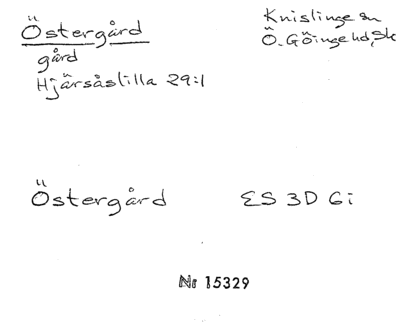 Östergård
gård
Hjärsåslilla 29:1
Knislinge sn
Ö. Göinge hd, Sk
Östergård ES 3D 6i
Nr 15329